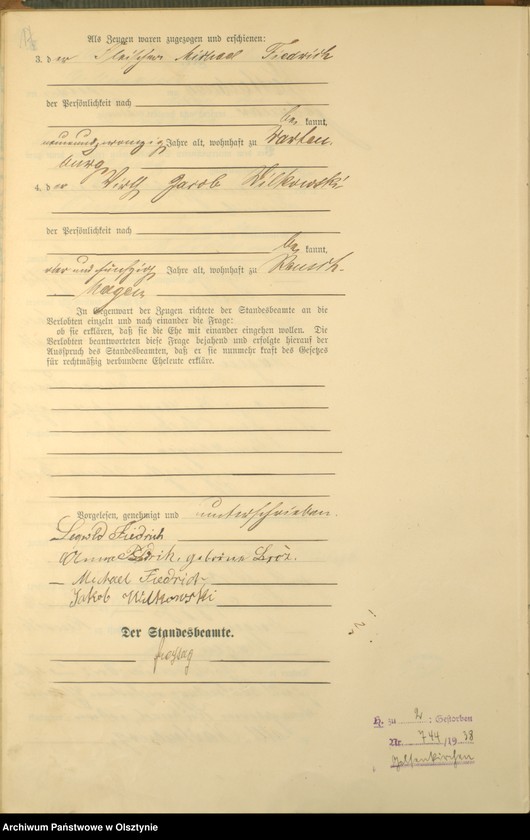 Als Zeugen waren zugezogen und erschienen:
3. der Fleischer Michael Fiedrich
der Persönlichkeit nach
be kannt,
neunundzwanzig Jahre alt, wohnhaft zu Warten-
burg
4. der Wirth Jacob Wilkowski
der Persönlichkeit nach
be kannt,
vier und fünfzig Jahre alt, wohnhaft zu Reusch-
hagen
In Gegenwart der Zeugen richtete der Standesbeamte an die
Verlobten einzeln und nach einander die Frage:
ob sie erklären, daß sie die Ehe mit einander eingehen wollen. Die
Verlobten beantworteten diese Frage bejahend und erfolgte hierauf der
Ausspruch des Standesbeamten, daß er sie nunmehr kraft des Gesetzes
für rechtmäßig verbundene Eheleute erkläre.
Vorgelesen, genehmigt und unterschrieben.
Leopold Fiedrich
Anna geborene
Michael Fiedrich
Jakob Wilkowski
Der Standesbeamte.
Freytag
H. zu 2 : Gestorben
Nr. 744/1938
Gelsenkirchen
Archiwum Państwowe w Olsztynie